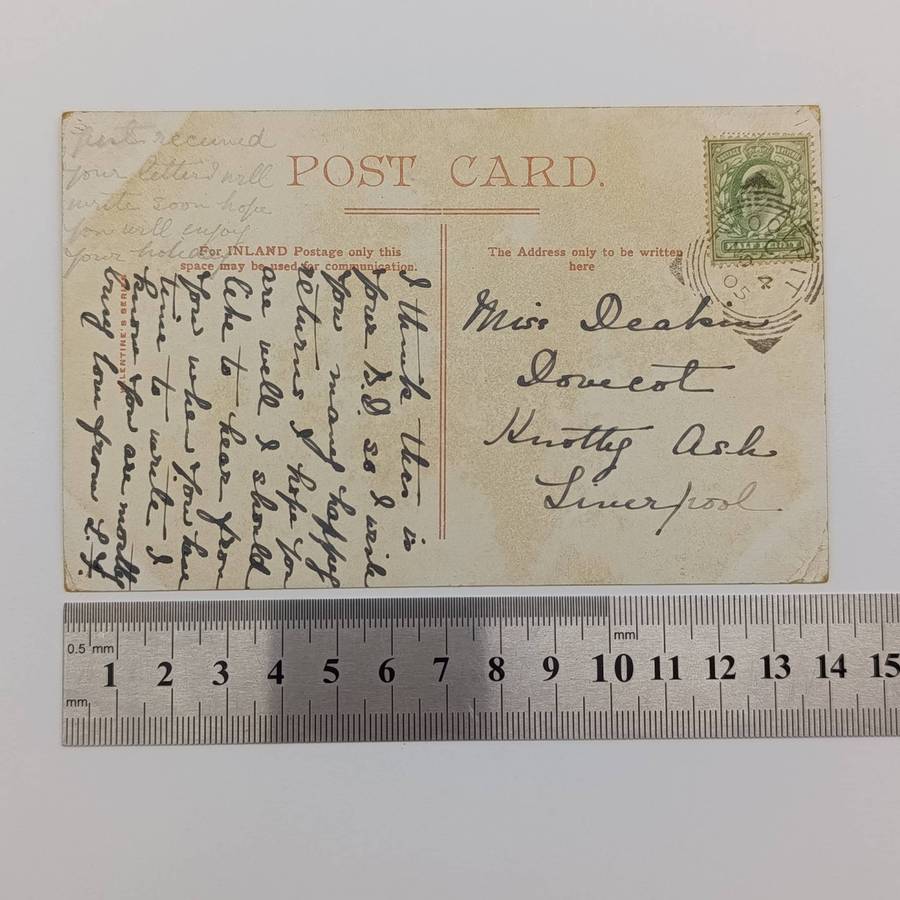 just received
your letter will
write soon hope
you will enjoy
your holiday
POST CARD.
For INLAND Postage only this
space may be used for communication.
The Address only to be written
here
HALFPENNY
05
VALENTINE'S SERIES
I think this is
your B.D. so I wish
you many happy
returns I hope you
are well I should
like to hear from
you when you have
time to write I
know you are mostly
busy love from L.F.
Miss Deakin
Dovecot
Knotty Ash
Liverpool
0.5 mm
mm
mm
1 2 3 4 5 6 7 8 9 10 11 12 13 14 15